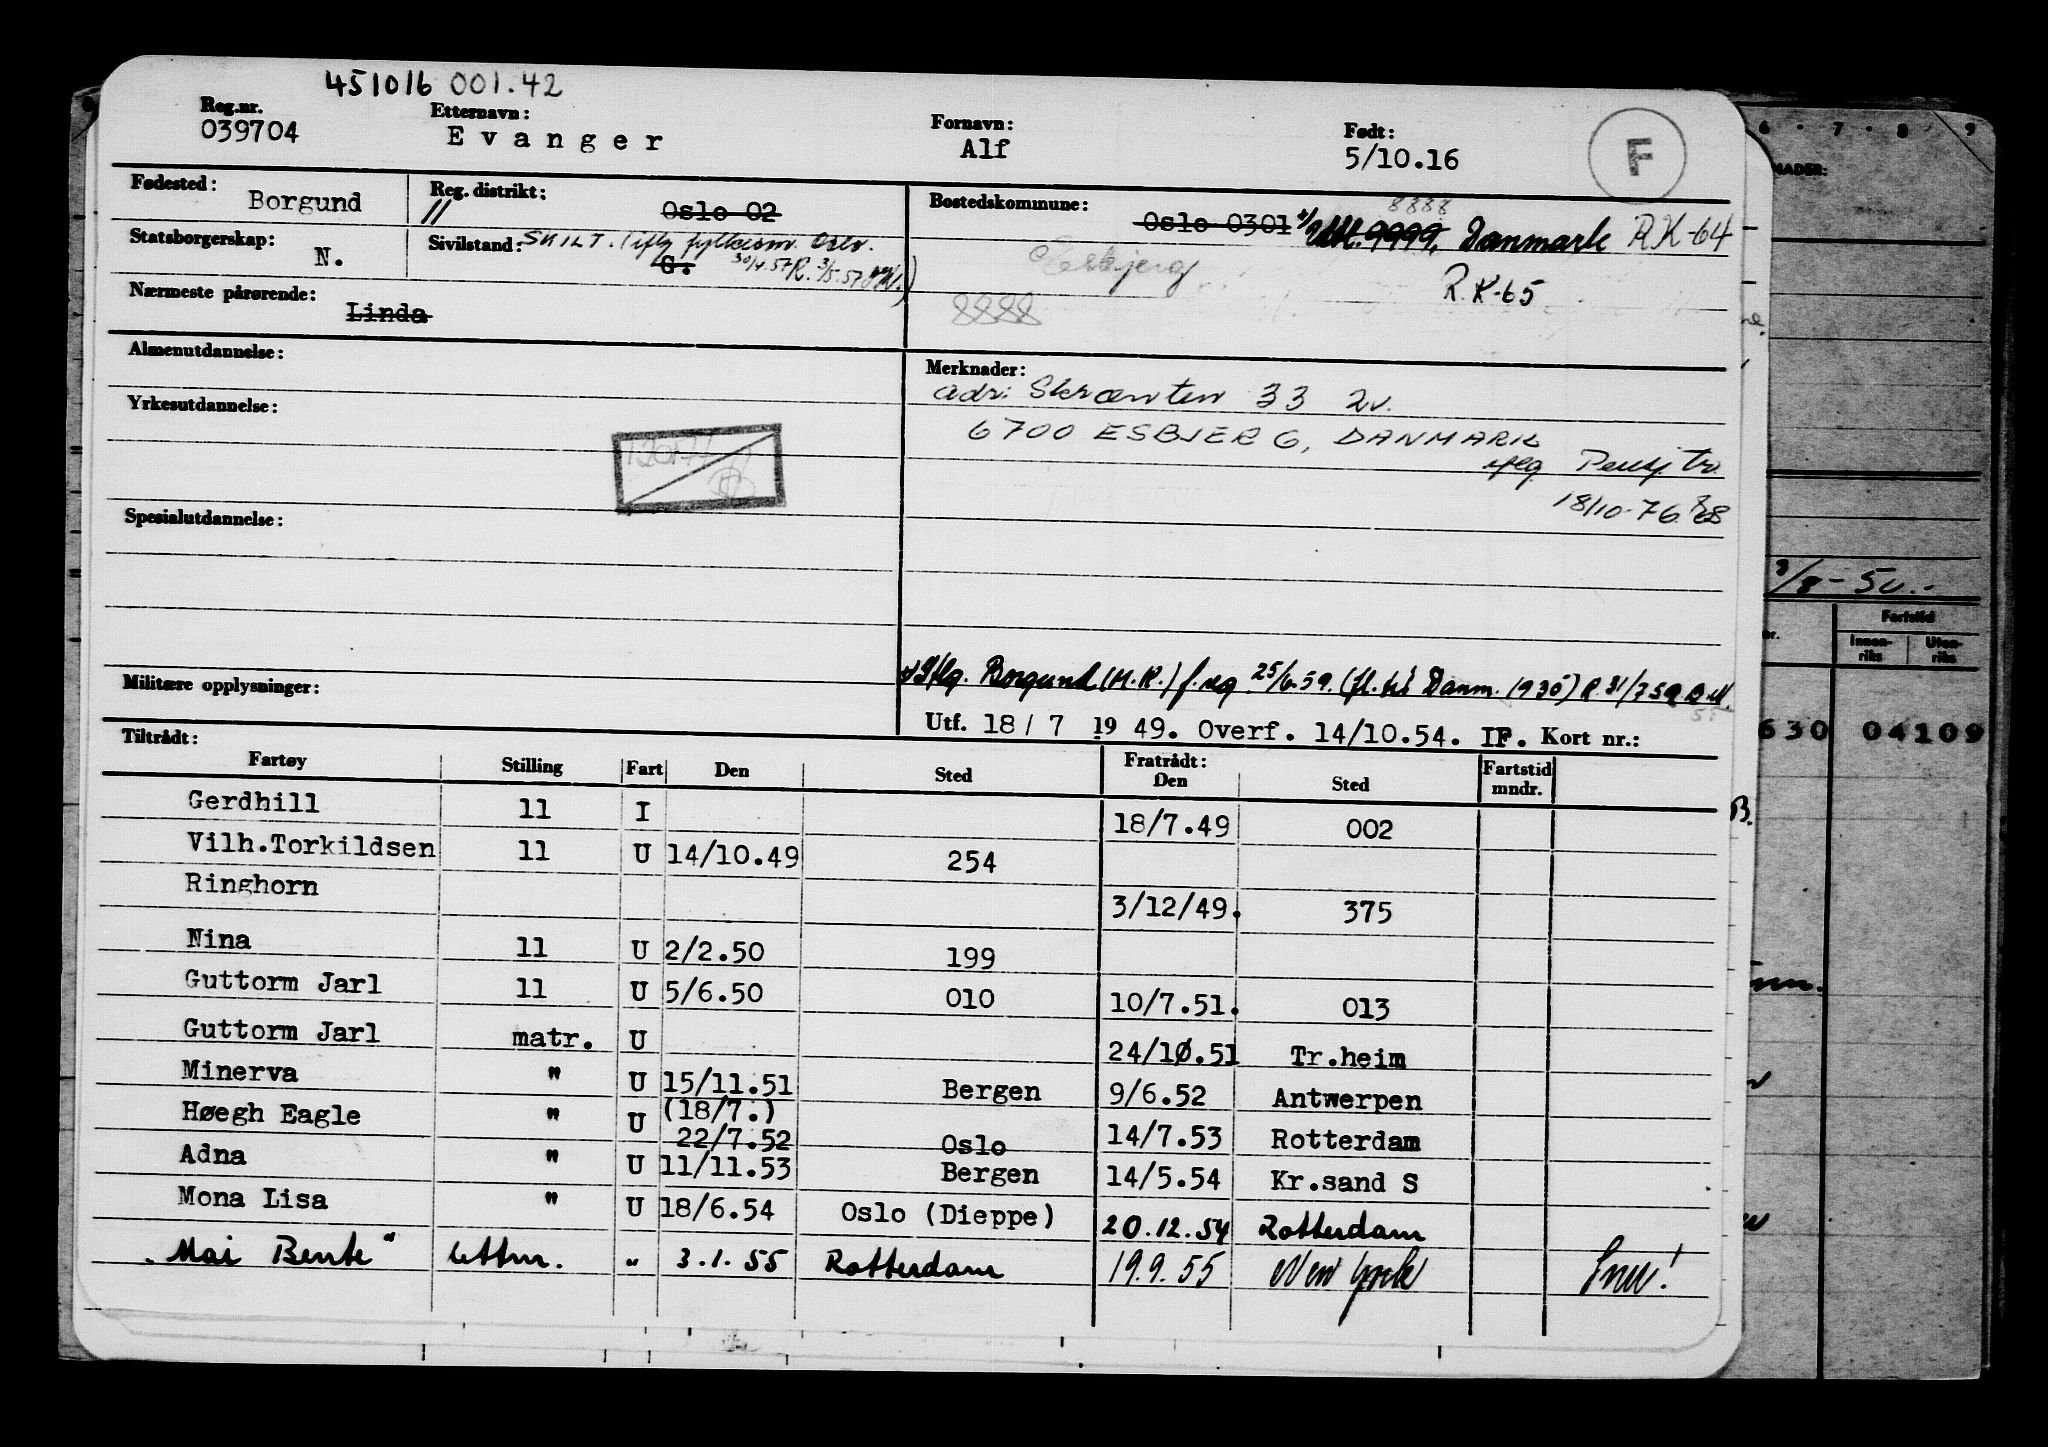 451016 001.42
Reg.nr. Etternavn: Fornavn: Født:
039704 Evanger Alf 5/10.16 F
Fødested: Borgund Reg. distrikt: 11 Oslo 02 Bostedskommune: Oslo 0301 8888 9999. Danmark RK-64
Statsborgerskap: N. Sivilstand: SKILT. iflg fylkesm. Oslo. G. 30/4.57 R. 3/5.57 Esbjerg R.K-65
Nærmeste pårørende: Linda 8888
Almenutdannelse: Merknader:
adr: Skrænten 33 2v.
Yrkesutdannelse: 6700 ESBJERG, DANMARK
iflg Pensj tr.
18/10-76
Spesialutdannelse:
Iflg. Borgund (M.R.) f. reg 25/6.59. (fl. til Danm. 1935) R. 31/7 59
Militære opplysninger:
Utf. 18/7 1949. Overf. 14/10.54. IF. Kort nr.:
Tiltrådt: Fratrådt:
Fartøy Stilling Fart Den Sted Den Sted Fartstid mndr.
Gerdhill 11 I 18/7.49 002
Vilh.Torkildsen 11 U 14/10.49 254
Ringhorn 3/12/49. 375
Nina 11 U 2/2.50 199
Guttorm Jarl 11 U 5/6.50 010 10/7.51. 013
Guttorm Jarl matr. U 24/10.51 Tr.heim
Minerva " U 15/11.51 Bergen 9/6.52 Antwerpen
Høegh Eagle " U (18/7.) 22/7.52 Oslo 14/7.53 Rotterdam
Adna " U 11/11.53 Bergen 14/5.54 Kr.sand S
Mona Lisa " U 18/6.54 Oslo (Dieppe) 20.12.54 Rotterdam
"Mai Bente" lettm. " 3.1.55 Rotterdam 19.9.55 New York Snu!
6 7 8 9
NADER:
3/8-50.-
nr. Fartstid
Innen-riks Uten-riks
630 04109
B.